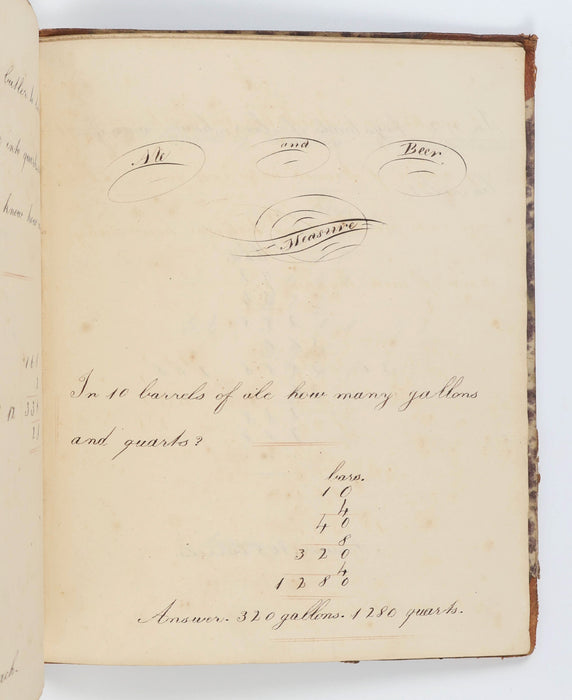 Ale and Beer.
Measure
In 10 barrels of ale how many gallons
and quarts?
bars.
1 0
4
4 0
8
3 2 0
4
1 2 8 0
Answer. 320 gallons. 1280 quarts.